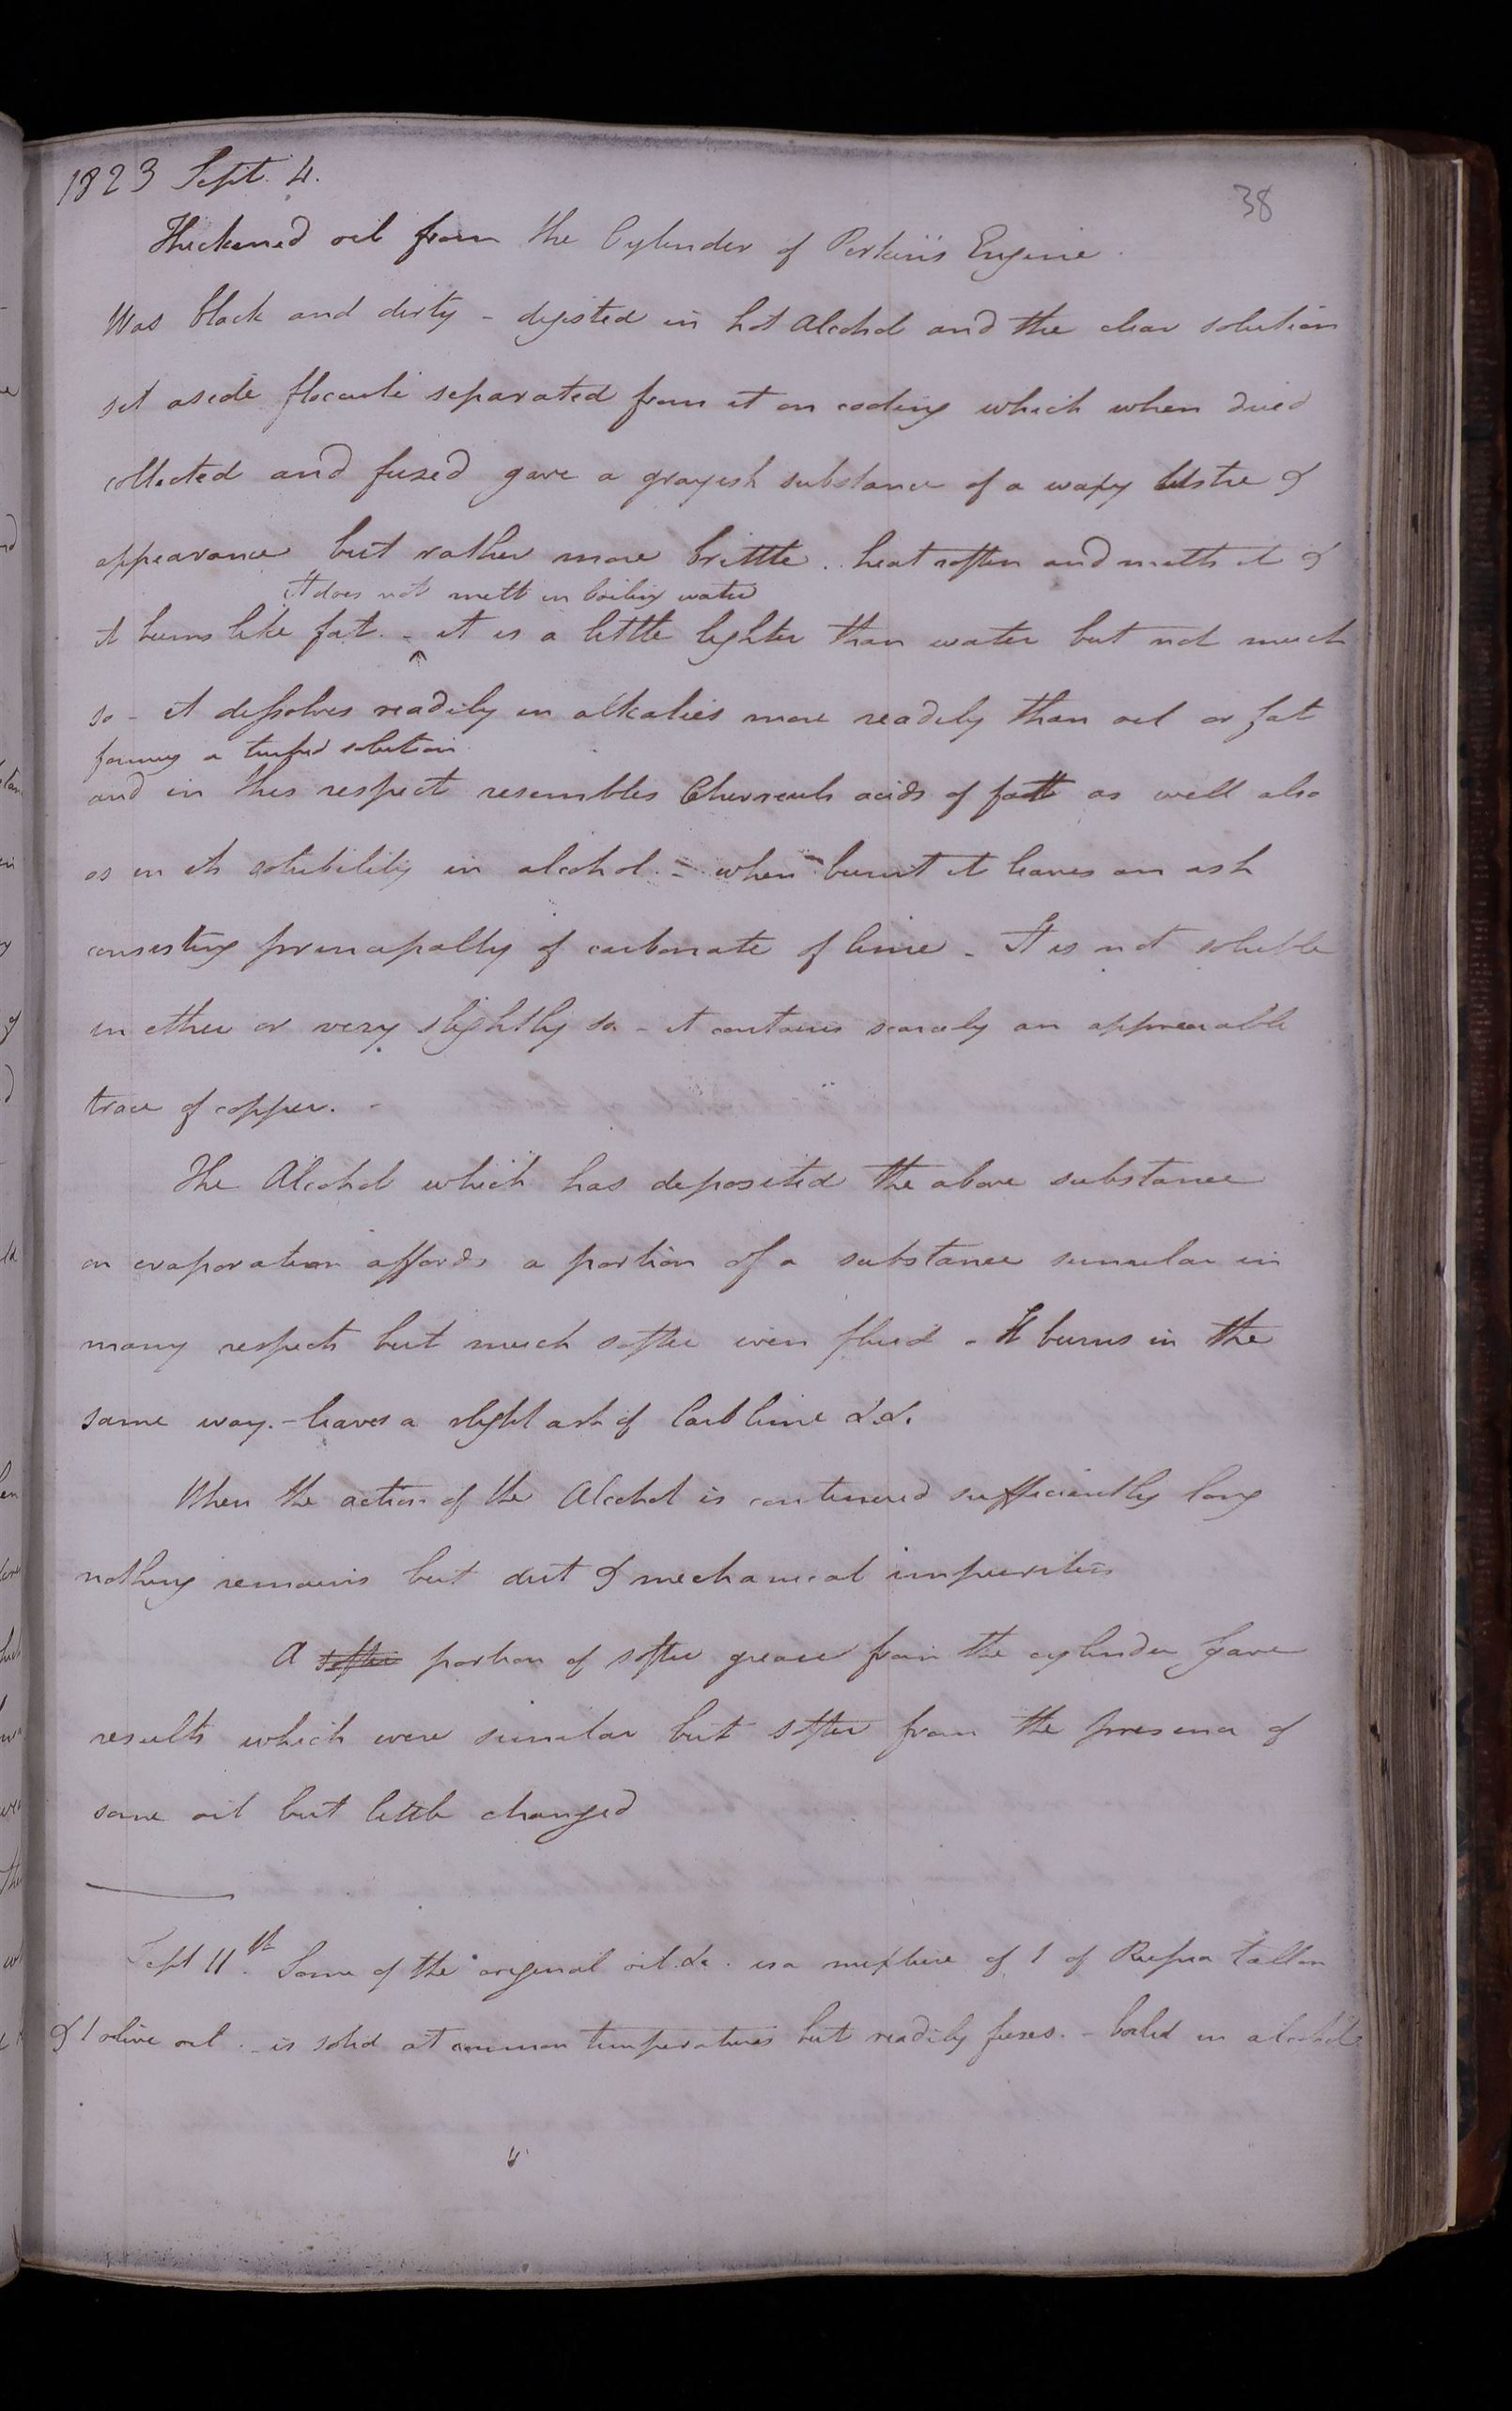 1823 Sept. 4.
38
Thickened oil from the Cylinder of Perkins Engine.
Was black and dirty - digested in hot Alcohol and the clear solution
set aside flocculi separated from it on cooling which when dried
collected and fused gave a grayish substance of a waxy lustre &
appearance but rather more brittle. heat soften and melts it &
it does not melt in boiling water
it burns like fat. - it is a little lighter than water but not much
so - it dissolves readily in alkalies more readily than oil or fat
forming a turbid solution
and in this respect resembles Chevreuls acids of fatt as well also
as in its solubility in alcohol. - when burnt it leaves an ash
consisting principally of carbonate of lime - It is not soluble
in ether or very slightly so - it contains scarcely an appreciable
trace of copper. -
The Alcohol which has deposited the above substance
on evaporation affords a portion of a substance similar in
many respects but much softer even fluid - It burns in the
same way. - leaves a slight ash of Carb lime &c.
When the action of the Alcohol is continued sufficiently long
nothing remains but dirt & mechanical impurities
A softer portion of softer grease from the cylinder gave
results which were similar but softer from the presence of
some oil but little changed
Sept 11th. Some of the original oil &c. is a mixture of 1 of Russia tallow
& 1 olive oil. - is solid at common temperatures but readily fuses. - boiled in alcohol